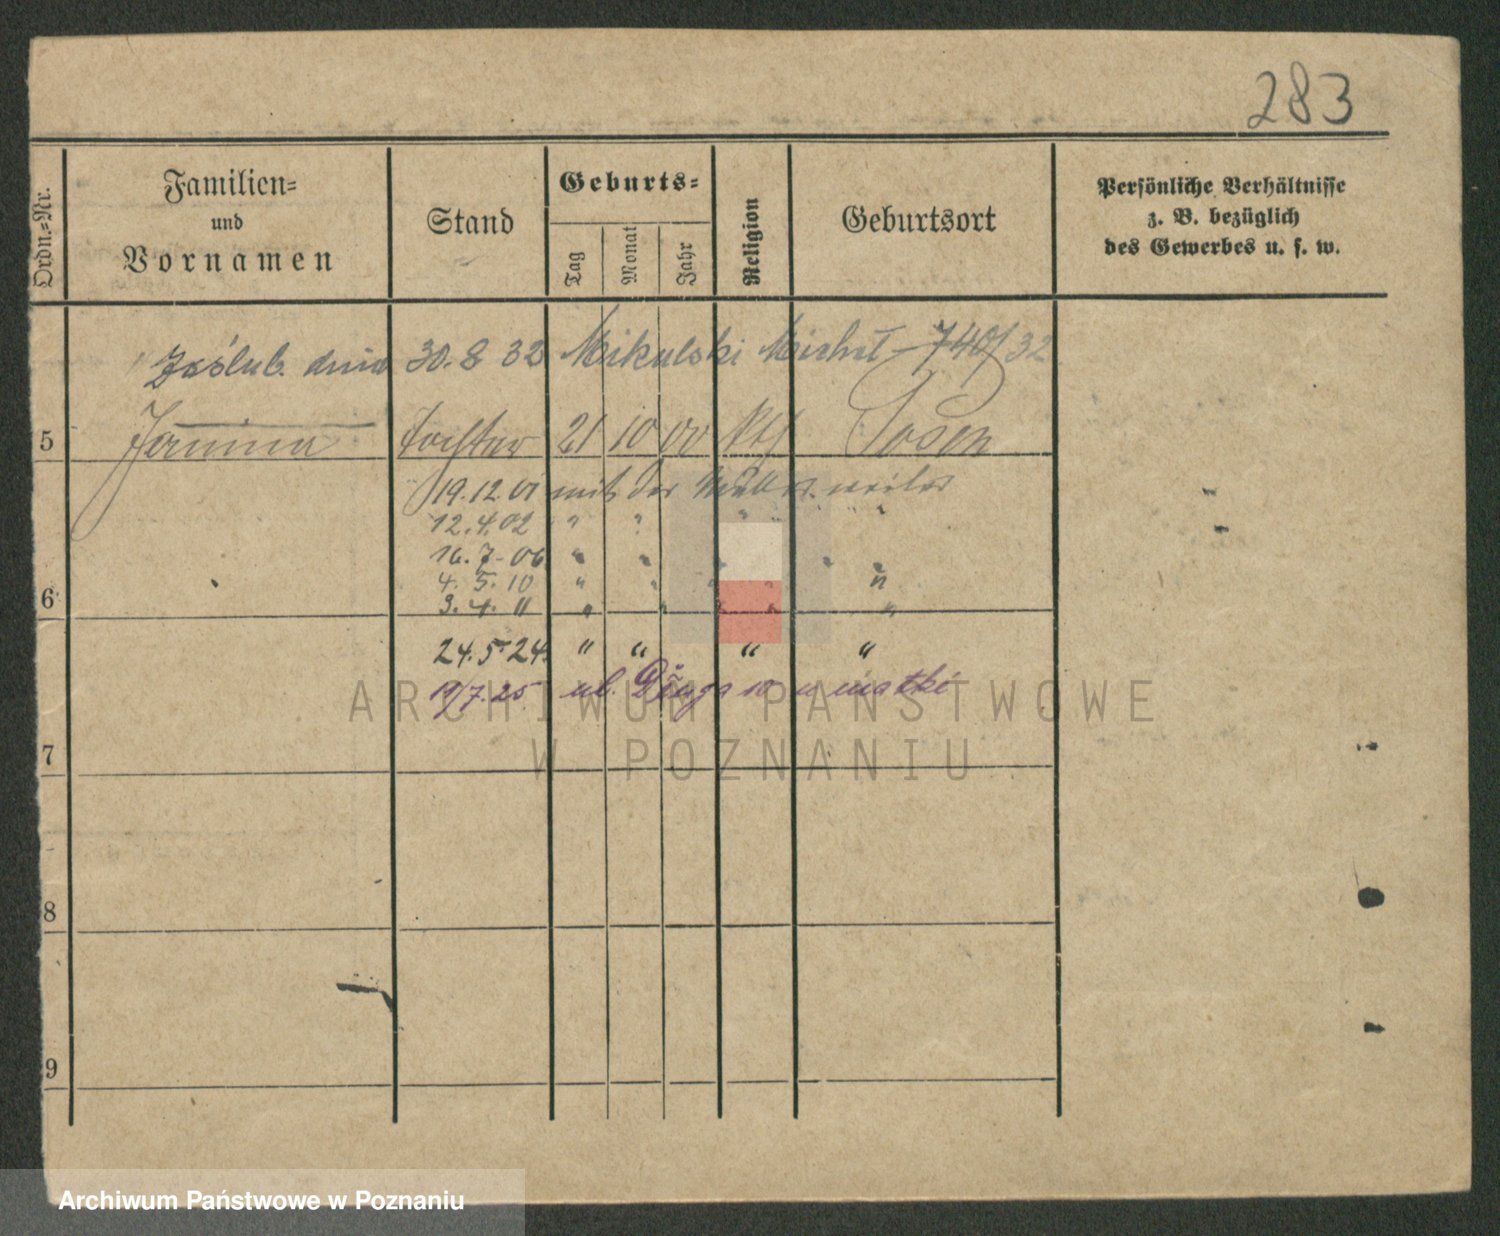 283
Ordn.=Nr.
Familien=
und
Vornamen
Stand
Geburts=
Tag
Monat
Jahr
Religion
Geburtsort
Persönliche Verhältnisse
z. B. bezüglich
des Gewerbes u. s. w.
Zaślub. dnia 30.8 32 Mikulski Michał 740/32
5 Janina Tochter 21 10 00 kth Posen
19.12.01 mit der Mutter weiter
12.4.02 " " " "
16.7-06 " " " "
4.5.10 " " " "
6 3.4.11 " " " "
24.5.24. " " " "
19/7.25 ul. Długa 10 u matki
ARCHIWUM PAŃSTWOWE
W POZNANIU
7
8
9
Archiwum Państwowe w Poznaniu